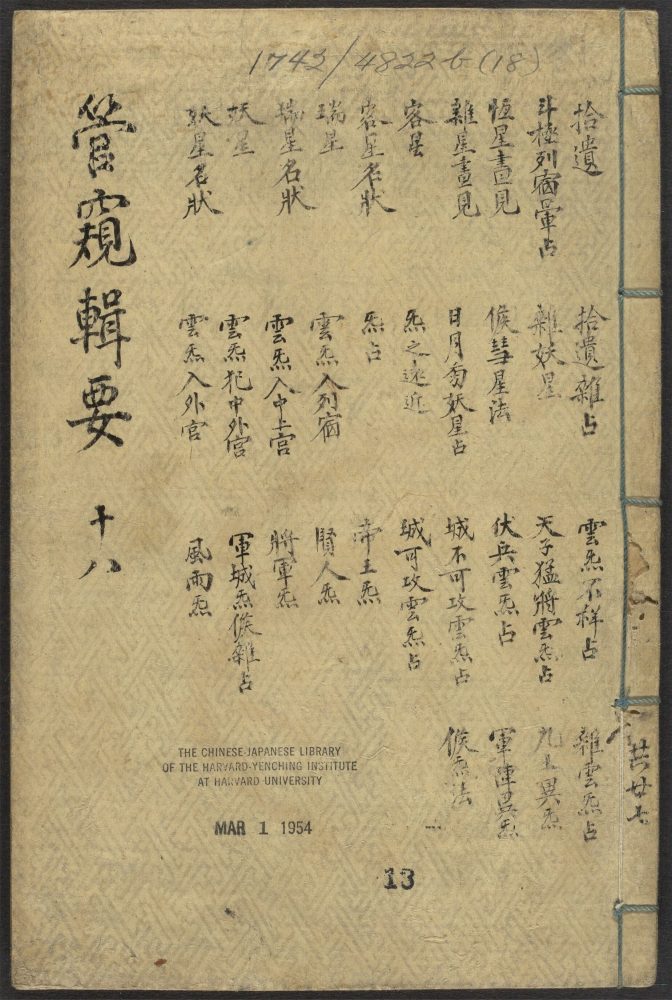 1743/4822b(18)
拾遺
斗極列宿暈占
恒星晝見
雜星晝見
客星
客星名狀
瑞星
瑞星名狀
妖星
妖星名狀
拾遺雜占
雜妖星
候彗星法
日月旁妖星占
炁之遠近
炁占
雲炁入列宿
雲炁入中宫
雲炁犯中外宫
雲炁入外官
雲炁不祥占
天子猛將雲炁占
伏兵雲炁占
城不可攻雲炁占
城可攻雲炁占
帝王炁
賢人炁
將軍炁
軍城炁候雜占
風雨炁
雜雲炁占
九土異炁
軍陣異炁
候炁法
管窺輯要 十八
共廿七
THE CHINESE-JAPANESE LIBRARY
OF THE HARVARD-YENCHING INSTITUTE
AT HARVARD UNIVERSITY
MAR 1 1954
13